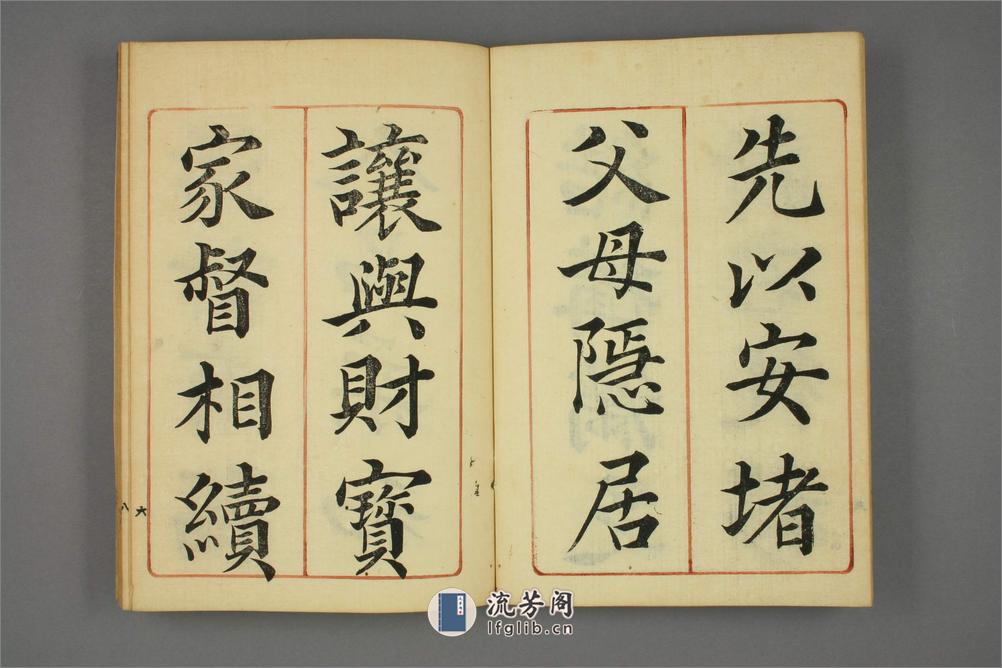 先以安堵
父母隱居
讓與財寶
家督相續
六
八
流芳阁
lfglib.cn